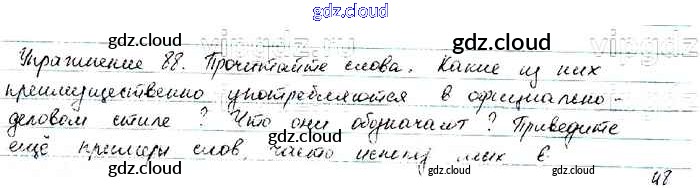 gdz.cloud
gdz.cloud vipgdz.ru gdz.cloud vipgdz
Упражнение 88. Прочитайте слова. Какие из них
преимущественно употребляются в официально-
gdz.cloud gdz.cloud
деловом стиле? Что они обозначают? Приведите
gdz.cloud
ещё примеры слов, часто в
gdz.cloud gdz.cloud
48